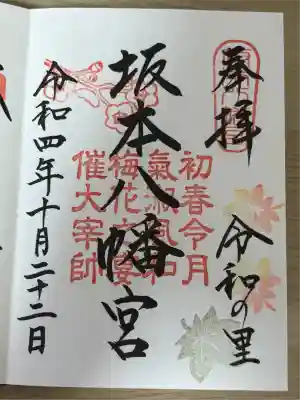 奉拝
令和の里
坂本八幡宮
初春令月
氣淑風和
梅花宴
催大宰帥
令和四年十月二十二日